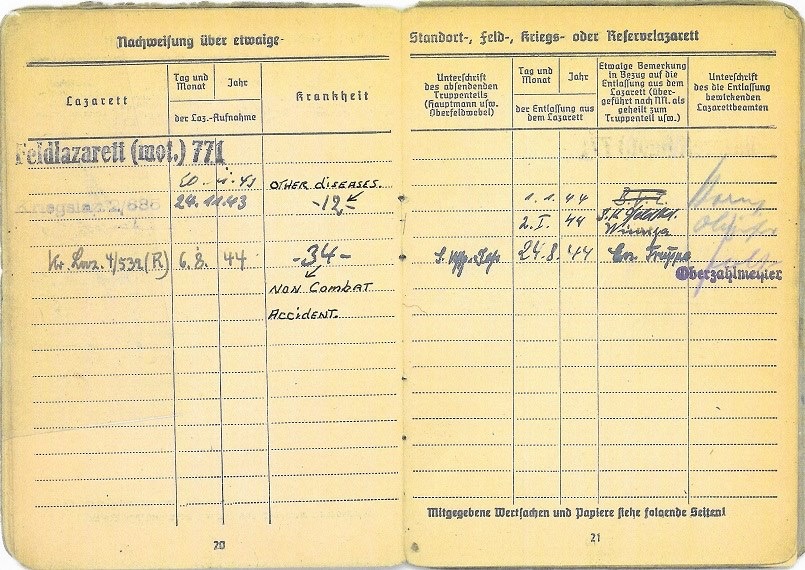 Nachweisung über etwaige-
Lazarett
Tag und Monat
Jahr
der Laz.-Aufnahme
Krankheit
Feldlazarett (mot.) 771
OTHER DISEASES.
24.11.43
-12-
6.8. 44
-34-
NON COMBAT
ACCIDENT.
20
Standort-, Feld-, Kriegs- oder Reservelazarett
Unterschrift
des absendenden
Truppenteils
(Hauptmann usw.
Oberfeldwebel)
Tag und Monat
Jahr
der Entlassung aus
dem Lazarett
Etwaige Bemerkung
in Bezug auf die
Entlassung aus dem
Lazarett (über-
geführt nach NN. als
geheilt zum
Truppenteil usw.)
Unterschrift
des die Entlassung
bewirkenden
Lazarettbeamten
1.1.44
2.I. 44
24.8.44
Oberzahlmeister
Mitgegebene Wertsachen und Papiere siehe folgende Seiten!
21